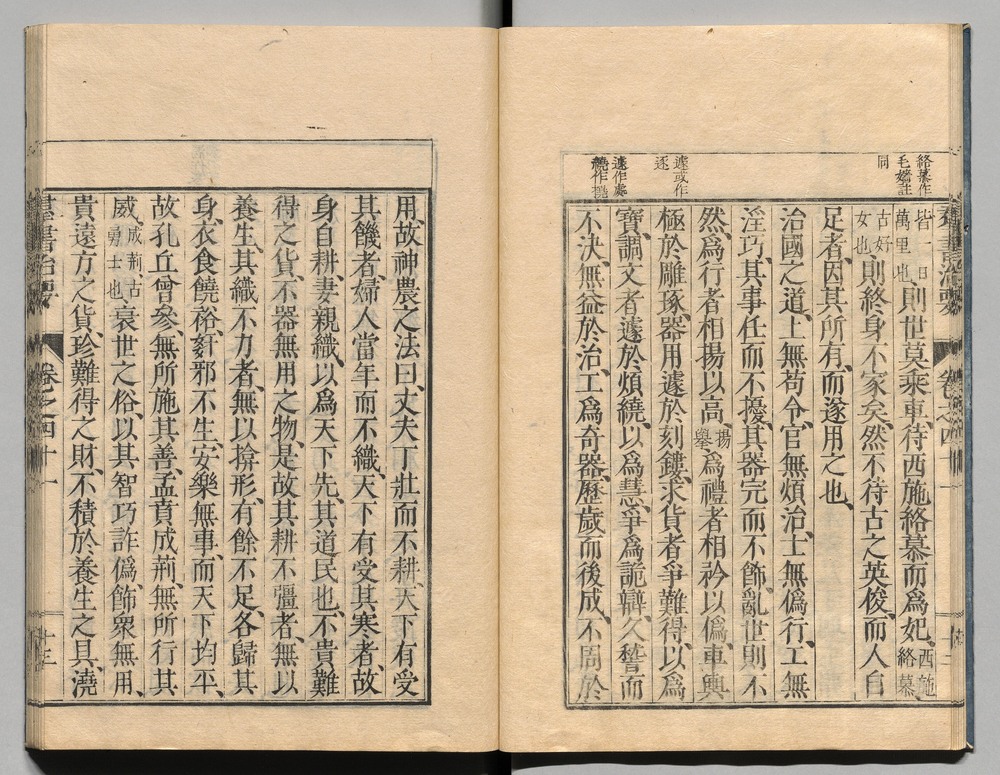 絡慕作
毛嬙註
同
遽或作
逐
遽作處
繞作撓
皆一日
萬里也
則世莫乘車、待西施絡慕而爲妃、
西施
絡慕
古好
女也
則終身不家矣、然不待古之英俊、而人自
足者、因其所有、而遂用之也、
治國之道、上無苟令、官無煩治、士無僞行、工無
淫巧、其事任而不擾、其器完而不飾、亂世則不
然、爲行者相揚以高、
揚
舉
爲禮者相矜以僞、車輿
極於雕琢、器用遽於刻鏤、求貨者爭難得、以爲
寶、調文者遽於煩繞、以爲慧、爭爲詭辯、久稽而
不決、無益於治、工爲奇器、歷歲而後成、不周於
羣書治要
卷之四十一
用、故神農之法曰、丈夫丁壯而不耕、天下有受
其饑者、婦人當年而不織、天下有受其寒者、故
身自耕、妻親織、以爲天下先、其道民也、不貴難
得之貨、不器無用之物、是故其耕不彊者、無以
養生、其織不力者、無以揜形、有餘不足、各歸其
身、衣食饒裕、姧邪不生、安樂無事、而天下均平、
故孔丘曾參、無所施其善、孟賁成荊、無所行其
威、
成荊古
勇士也
衰世之俗、以其智巧詐僞、飾衆無用、
貴遠方之貨、珍難得之財、不積於養生之具、澆
羣書治要
卷之四十一
十三